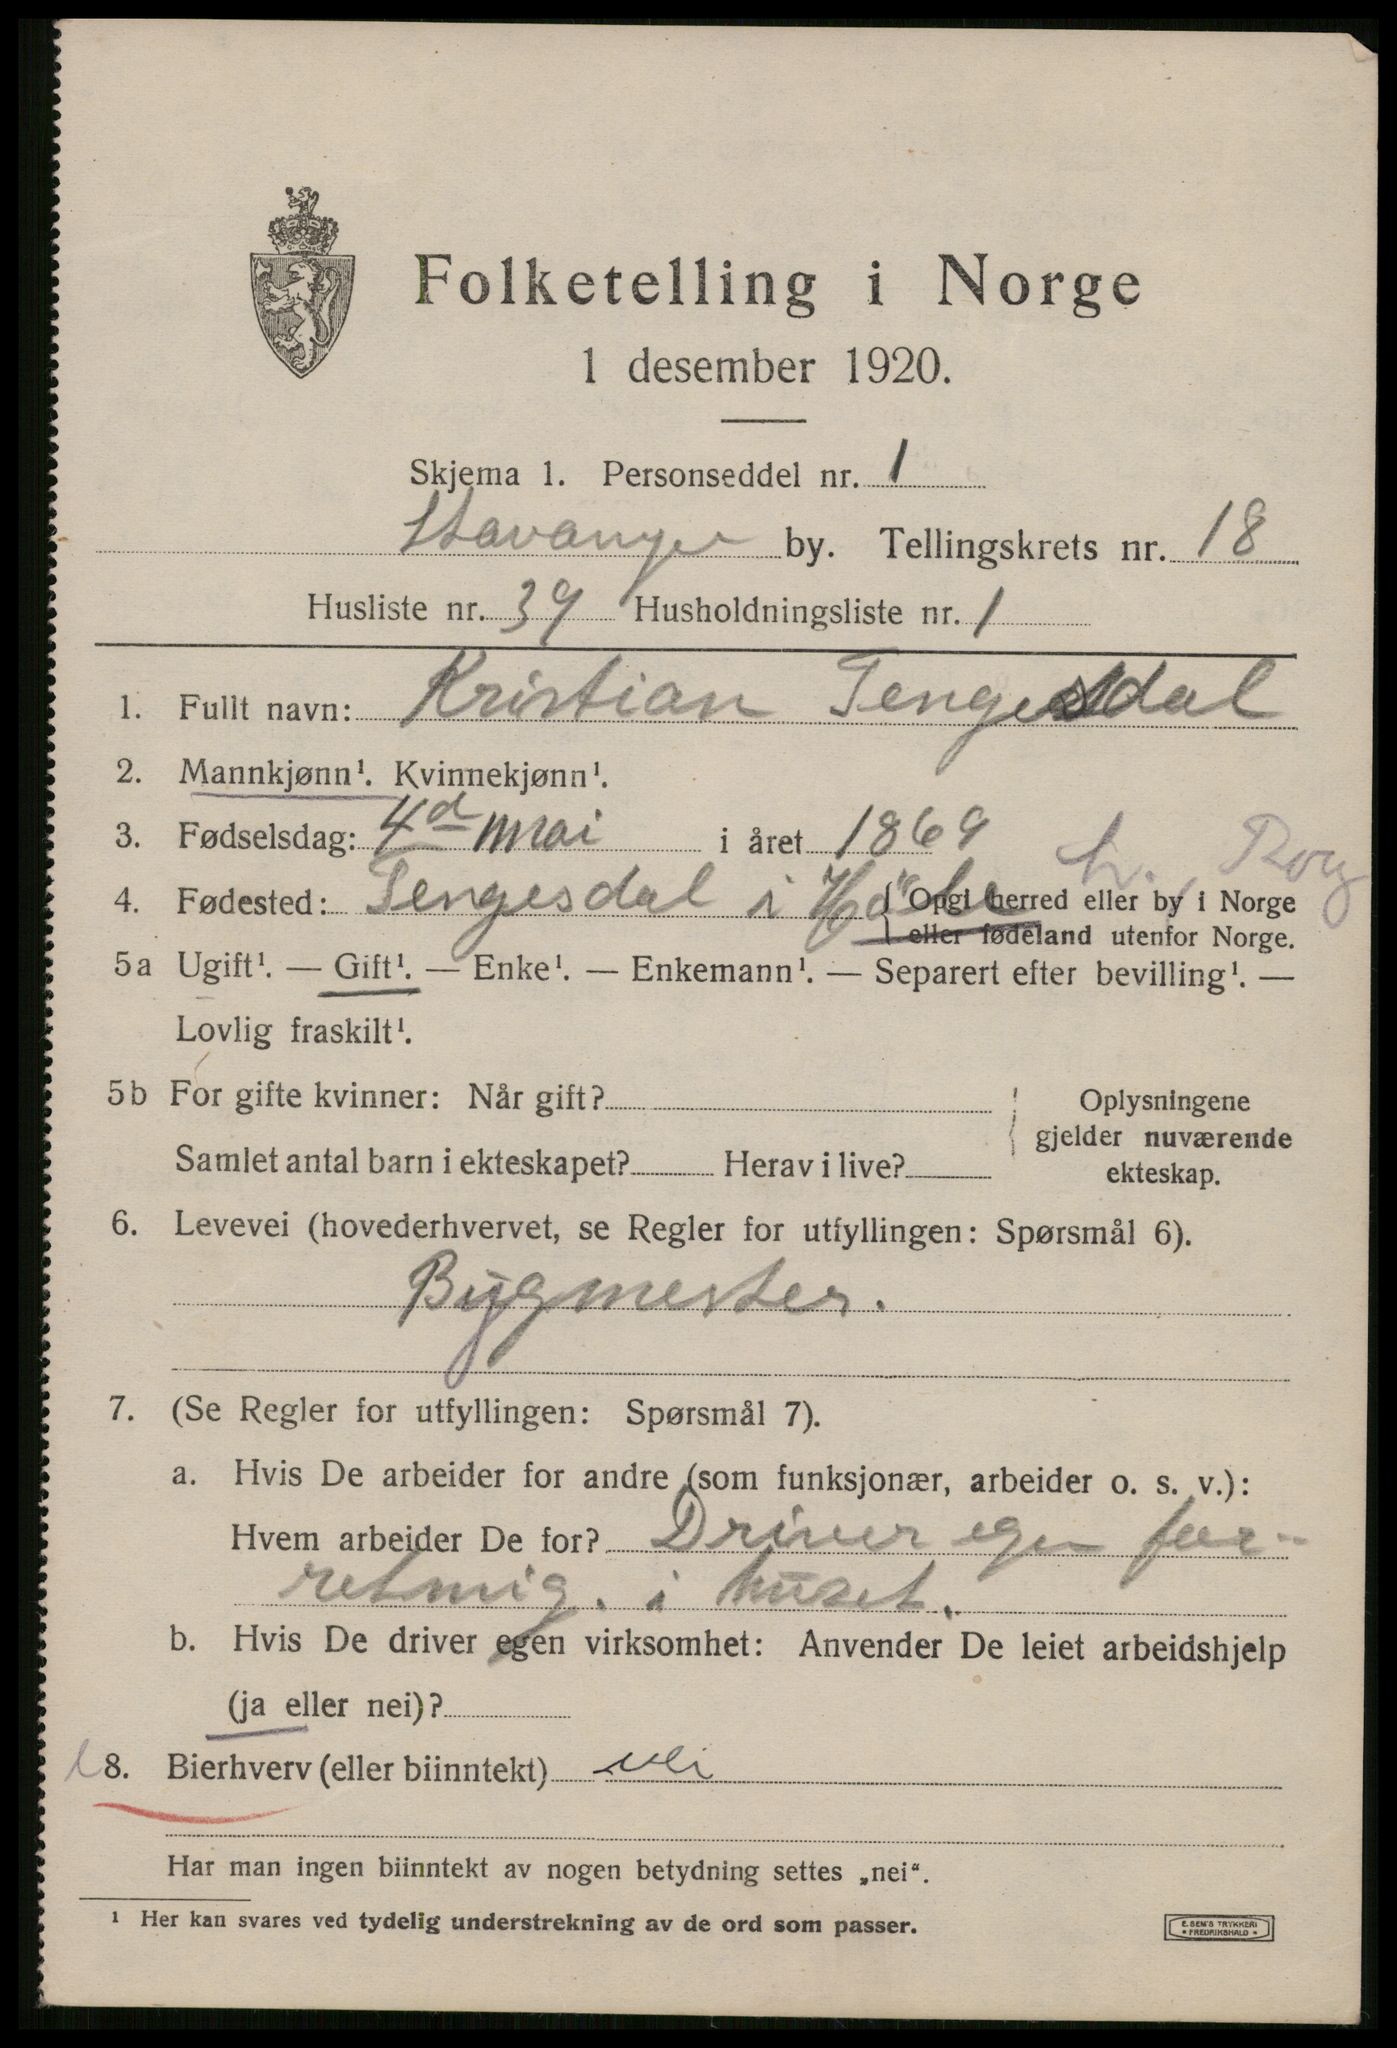 Folketelling i Norge
1 desember 1920.
Skjema 1. Personseddel nr. 1
Stavanger by. Tellingskrets nr. 18
Husliste nr. 39 Husholdningsliste nr. 1
1. Fullt navn: Kristian Tengesdal
2. Mannkjønn¹. Kvinnekjønn¹.
3. Fødselsdag: 4d mai i året 1869
4. Fødested: Tengesdal i Høle { Opgi herred eller by i Norge
eller fødeland utenfor Norge.
5a Ugift¹. — Gift¹. — Enke¹. — Enkemann¹. — Separert efter bevilling¹. —
Lovlig fraskilt¹.
5b For gifte kvinner: Når gift?
Samlet antal barn i ekteskapet? Herav i live?
Oplysningene
gjelder nuværende
ekteskap.
6. Levevei (hovederhvervet, se Regler for utfyllingen: Spørsmål 6).
Bygmester.
7. (Se Regler for utfyllingen: Spørsmål 7).
a. Hvis De arbeider for andre (som funksjonær, arbeider o. s. v.):
Hvem arbeider De for? Driver egen for-
retning. i huset.
b. Hvis De driver egen virksomhet: Anvender De leiet arbeidshjelp
(ja eller nei)?
8. Bierhverv (eller biinntekt) nei
Har man ingen biinntekt av nogen betydning settes „nei“.
¹ Her kan svares ved tydelig understrekning av de ord som passer.
E. SEM'S TRYKKERI
* FREDRIKSHALD *